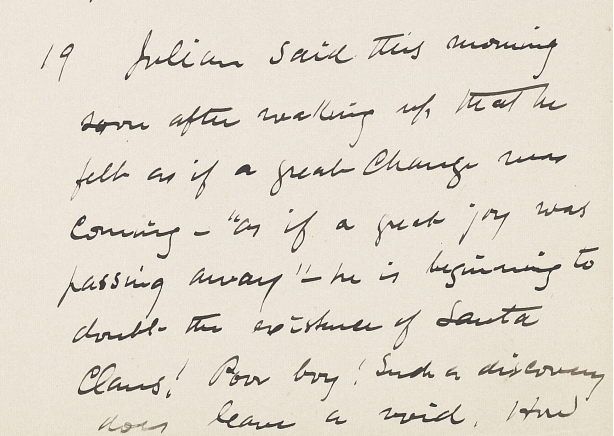 19 Julian said this morning
soon after waking up, that he
felt as if a great change was
coming - "as if a great joy was
passing away" - he is beginning to
doubt the existence of Santa
Claus! Poor boy! Such a discovery
does leave a void. How